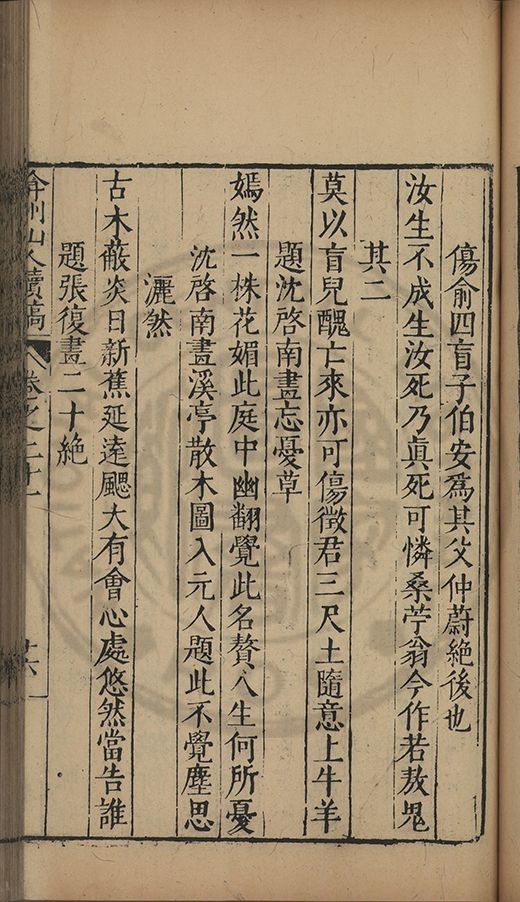 傷俞四盲子伯安爲其父仲蔚絶後也
汝生不成生汝死乃眞死可憐桑苧翁今作若敖鬼
其二
莫以盲兒醜亡來亦可傷徵君三尺土隨意上牛羊
題沈啓南畫忘憂草
嫣然一株花媚此庭中幽翻覺此名贅人生何所憂
沈啓南畫溪亭散木圖入元人題此不覺塵思
灑然
古木蔽炎日新蕉延遠颸大有會心處悠然當告誰
題張復畫二十絶
弇州山人續稿 卷之二十一 十六